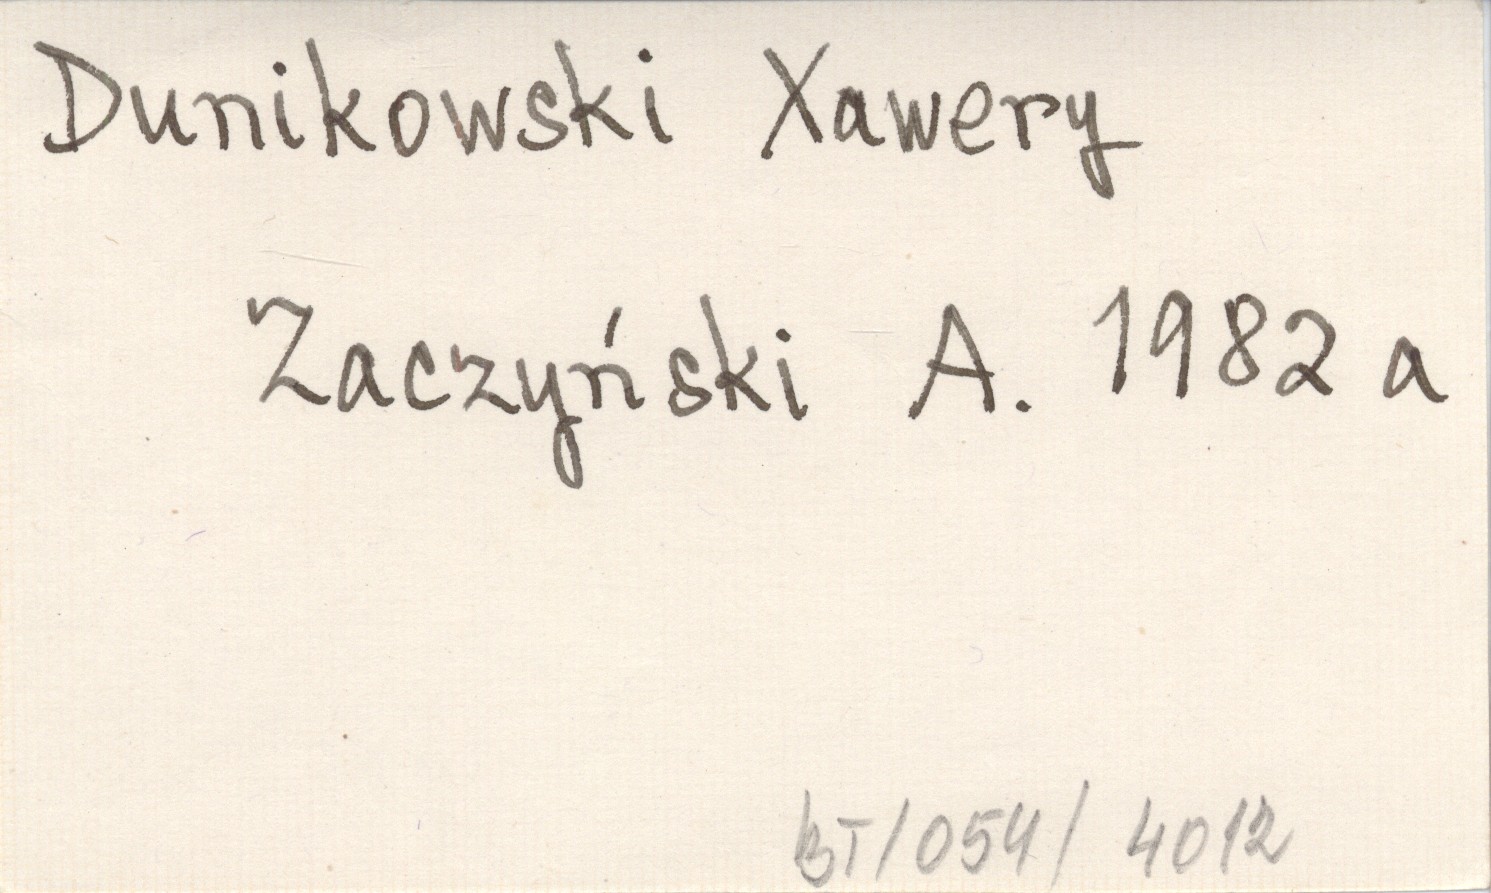 Dunikowski Xawery
Zaczyński A. 1982 a
BT/054/4012